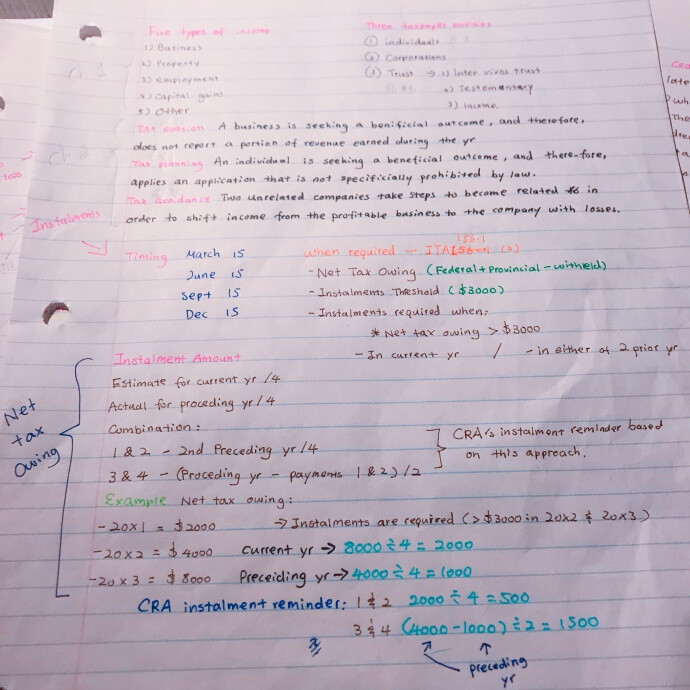 Five types of income
1) Business
2) Property
3) employment
4) Capital gains
5) Other
Three taxpayer entities
① individuals
② Corporations
③ Trust → 1) Inter vivos trust
2) Testementary
3) Income
Tax evasion A business is seeking a benificial outcome, and therefore,
does not report a portion of revenue earned during the yr
Tax planning An individual is seeking a beneficial outcome, and there-fore,
applies an application that is not specificially prohibited by law.
Tax avoidance Two unrelated companies take steps to become related in
order to shift income from the profitable business to the company with losses.
Instalments
Timing March 15
June 15
Sept 15
Dec 15
When required - ITA 156.1 (2)
- Net Tax Owing (Federal + Provincial - withheld)
- Instalments Threshold ($3000)
- Instalments required when:
* Net tax owing > $3000
- In current yr / - in either of 2 prior yr
Net
tax
owing
Instalment Amount
Estimate for current yr /4
Actual for proceding yr /4
Combination:
1 & 2 - 2nd Preceding yr /4
3 & 4 - (Proceding yr - payments 1 & 2) /2
CRA's instalment reminder based
on this approach.
Example Net tax owing:
- 20x1 = $2000 → Instalments are required (> $3000 in 20x2 & 20x3)
- 20x2 = $4000 Current yr → 8000 ÷ 4 = 2000
- 20x3 = $8000 Preceiding yr → 4000 ÷ 4 = 1000
CRA instalment reminder: 1 & 2 2000 ÷ 4 = 500
3 & 4 (4000 - 1000) ÷ 2 = 1500
preceding
yr
late